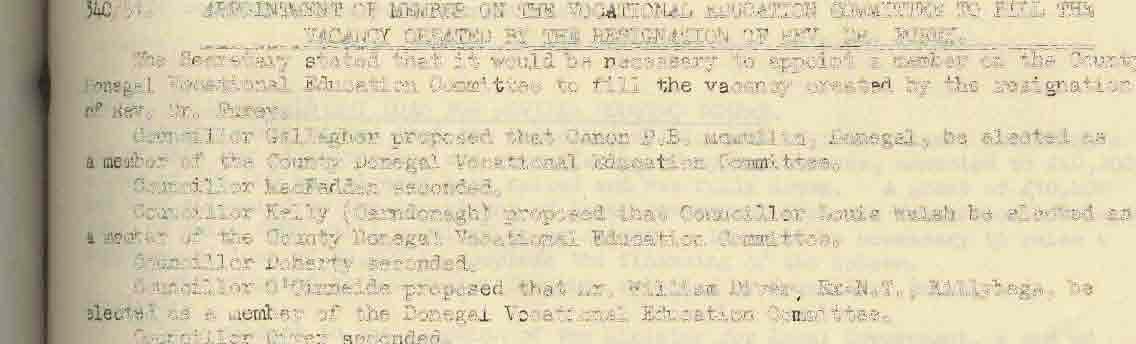 340/5 APPOINTMENT OF MEMBER ON THE VOCATIONAL EDUCATION COMMITTEE TO FILL THE
VACANCY CREATED BY THE RESIGNATION OF REV. DR. FUREY.
The Secretary stated that it would be necessary to appoint a member on the County
Donegal Vocational Education Committee to fill the vacancy created by the resignation
of Rev. Dr. Furey.
Councillor Gallagher proposed that Canon P.B. McMullin, Donegal, be elected as
a member of the County Donegal Vocational Education Committee.
Councillor MacFadden seconded.
Councillor Kelly (Carndonagh) proposed that Councillor Louis Walsh be elected as
a member of the County Donegal Vocational Education Committee.
Councillor Doherty seconded.
Councillor O'Cinneide proposed that Mr. William Diver, Ex-N.T., Killybegs, be
elected as a member of the Donegal Vocational Education Committee.
Councillor seconded.